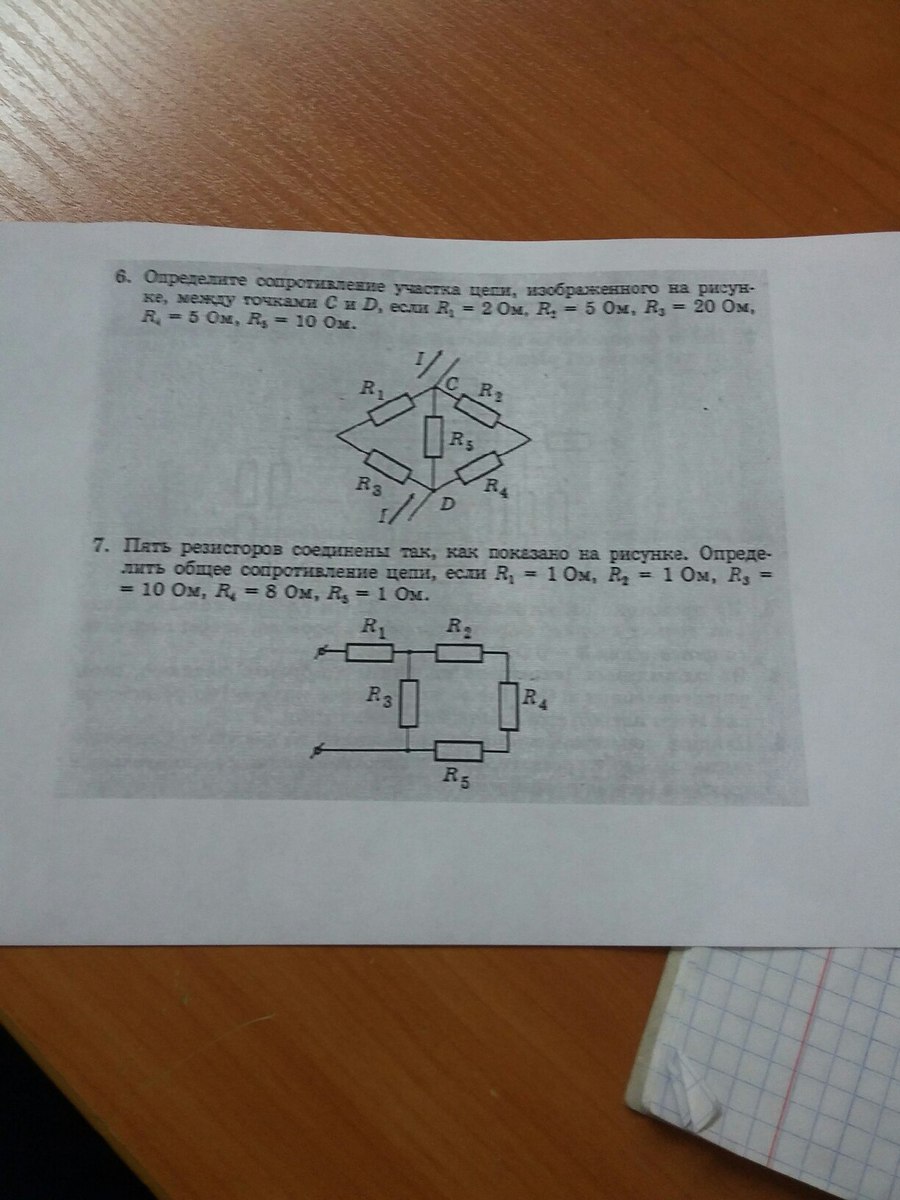 6. Определите сопротивление участка цепи, изображенного на рисун-
ке, между точками C и D, если R₁ = 2 Ом, R₂ = 5 Ом, R₃ = 20 Ом,
R₄ = 5 Ом, R₅ = 10 Ом.
I
R₁
C
R₂
R₅
R₃
R₄
I
D
7. Пять резисторов соединены так, как показано на рисунке. Опреде-
лить общее сопротивление цепи, если R₁ = 1 Ом, R₂ = 1 Ом, R₃ =
= 10 Ом, R₄ = 8 Ом, R₅ = 1 Ом.
R₁
R₂
R₃
R₄
R₅